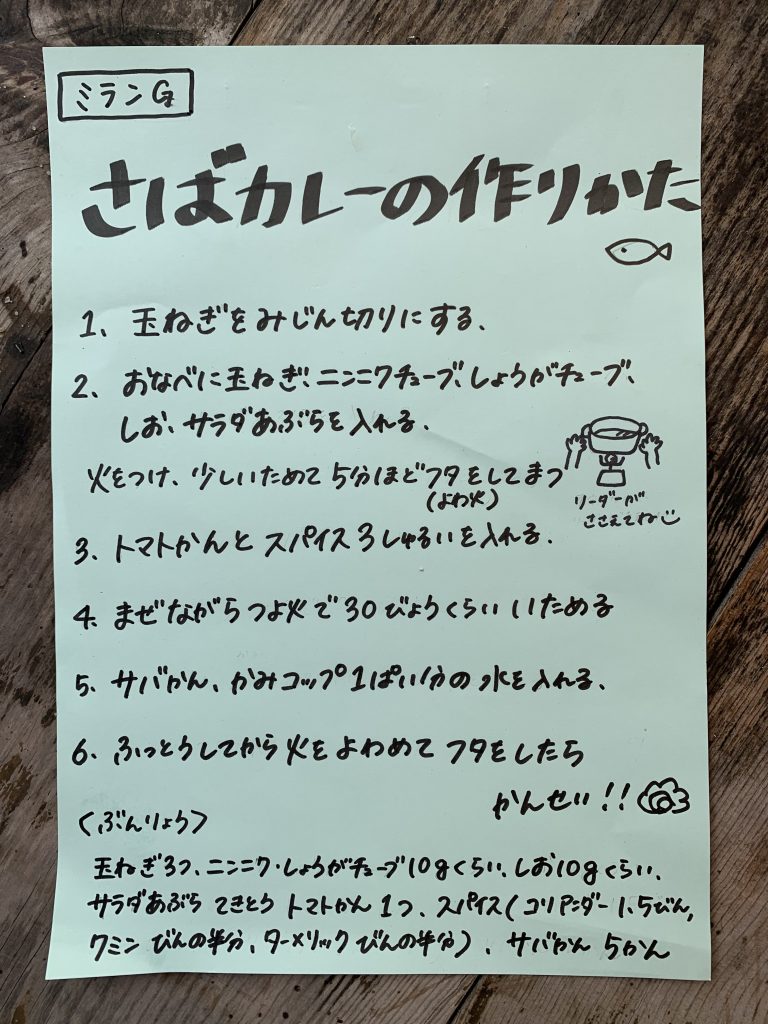 ミランG
さばカレーの作りかた
1、玉ねぎをみじん切りにする、
2、おなべに玉ねぎ、ニンニクチューブ、しょうがチューブ、
しお、サラダあぶらを入れる、
火をつけ、少しいためて5分ほどフタをしてまつ
(よわ火)
リーダーが
ささえてね
3、トマトかんとスパイス3しゅるいを入れる、
4、まぜながらつよ火で30びょうくらいいためる
5、サバかん、かみコップ1ぱい分の水を入れる、
6、ふっとうしてから火をよわめてフタをしたら
かんせい!!
<ぶんりょう>
玉ねぎ3つ、ニンニク・しょうがチューブ10gくらい、しお10gくらい、
サラダあぶら てきとう トマトかん 1つ、スパイス(コリアンダー 1.5びん,
クミン びんの半分、ターメリック びんの半分)、サバかん 5かん